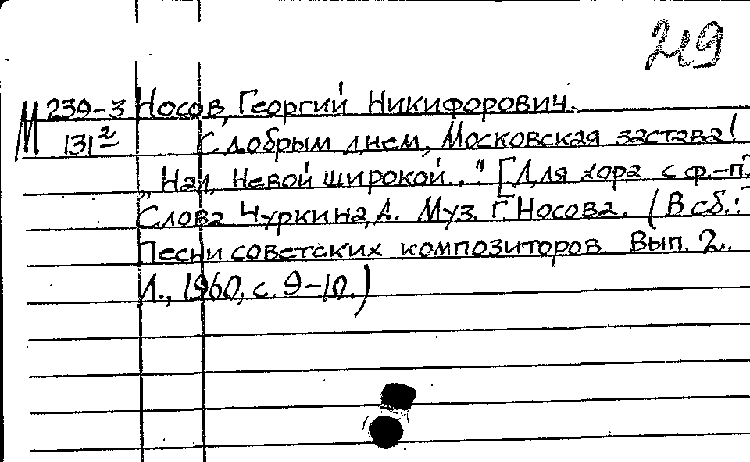 219
М 239-3 Носов, Георгий Никифорович.
131² С добрым днем, Московская застава!
„Над Невой широкой..." [Для хора с ф.-п.
Слова Чуркина, А. Муз. Г. Носова. (В сб.:
Песни советских композиторов. Вып. 2.
Л., 1960, с. 9-10.)